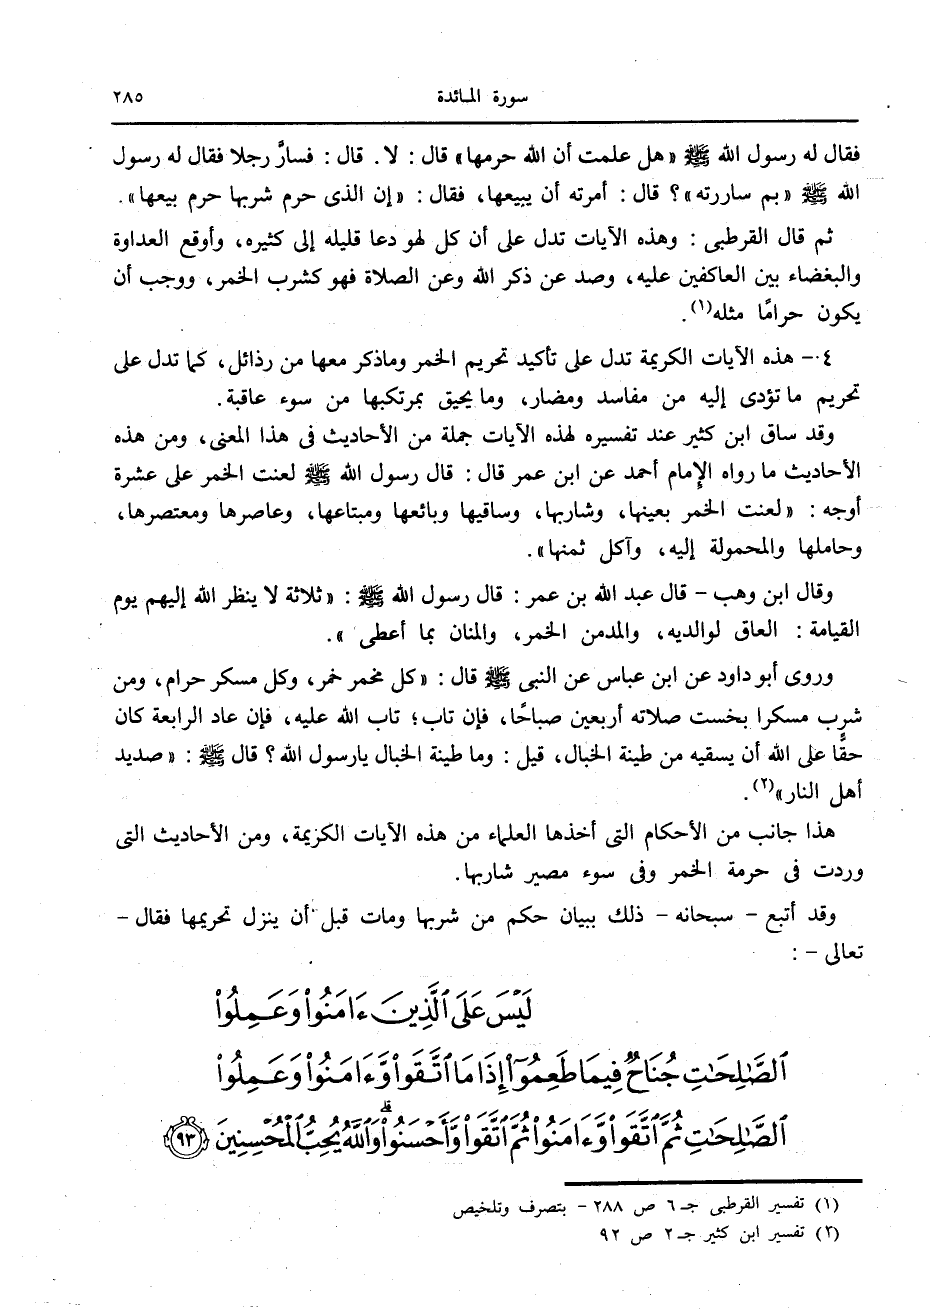 سورة المائدة ٢٨٥
فقال له رسول الله ﷺ «هل علمت أن الله حرمها» قال : لا. قال : فسارَّ رجلا فقال له رسول
الله ﷺ «بم ساررته»؟ قال : أمرته أن يبيعها، فقال : «إن الذى حرم شربها حرم بيعها».
ثم قال القرطبى : وهذه الآيات تدل على أن كل لهو دعا قليله إلى كثيره، وأوقع العداوة
والبغضاء بين العاكفين عليه، وصد عن ذكر الله وعن الصلاة فهو كشرب الخمر، ووجب أن
يكون حرامًا مثله(١).
٤- هذه الآيات الكريمة تدل على تأكيد تحريم الخمر وماذكر معها من رذائل، كما تدل على
تحريم ماتؤدى إليه من مفاسد ومضار، وما يحيق بمرتكبها من سوء عاقبة.
وقد ساق ابن كثير عند تفسيره لهذه الآيات جملة من الأحاديث فى هذا المعنى، ومن هذه
الأحاديث ما رواه الإمام أحمد عن ابن عمر قال : قال رسول الله ﷺ لعنت الخمر على عشرة
أوجه : «لعنت الخمر بعينها، وشاربها، وساقيها وبائعها ومبتاعها، وعاصرها ومعتصرها،
وحاملها والمحمولة إليه، وآكل ثمنها».
وقال ابن وهب - قال عبد الله بن عمر : قال رسول الله ﷺ : «ثلاثة لا ينظر الله إليهم يوم
القيامة : العاق لوالديه، والمدمن الخمر، والمنان بما أعطى ».
وروى أبو داود عن ابن عباس عن النبى ﷺ قال : «كل مخمر خمر، وكل مسكر حرام، ومن
شرب مسكرا بخست صلاته أربعين صباحًا، فإن تاب؛ تاب الله عليه، فإن عاد الرابعة كان
حقًّا على الله أن يسقيه من طينة الخبال، قيل : وما طينة الخبال يارسول الله؟ قال ﷺ : «صديد
أهل النار»(٢).
هذا جانب من الأحكام التى أخذها العلماء من هذه الآيات الكريمة، ومن الأحاديث التى
وردت فى حرمة الخمر وفى سوء مصير شاربها.
وقد أتبع - سبحانه - ذلك ببيان حكم من شربها ومات قبل أن ينزل تحريمها فقال -
تعالى - :
لَيْسَ عَلَى ٱلَّذِينَ ءَامَنُوا۟ وَعَمِلُوا۟
ٱلصَّـٰلِحَـٰتِ جُنَاحٌ فِيمَا طَعِمُوٓا۟ إِذَا مَا ٱتَّقَوا۟ وَّءَامَنُوا۟ وَعَمِلُوا۟
ٱلصَّـٰلِحَـٰتِ ثُمَّ ٱتَّقَوا۟ وَّءَامَنُوا۟ ثُمَّ ٱتَّقَوا۟ وَّأَحْسَنُوا۟ ۗ وَٱللَّهُ يُحِبُّ ٱلْمُحْسِنِينَ ﴿٩٣﴾
(١) تفسير القرطبى جـ ٦ ص ٢٨٨ - بتصرف وتلخيص
(٢) تفسير ابن كثير جـ ٢ ص ٩٢